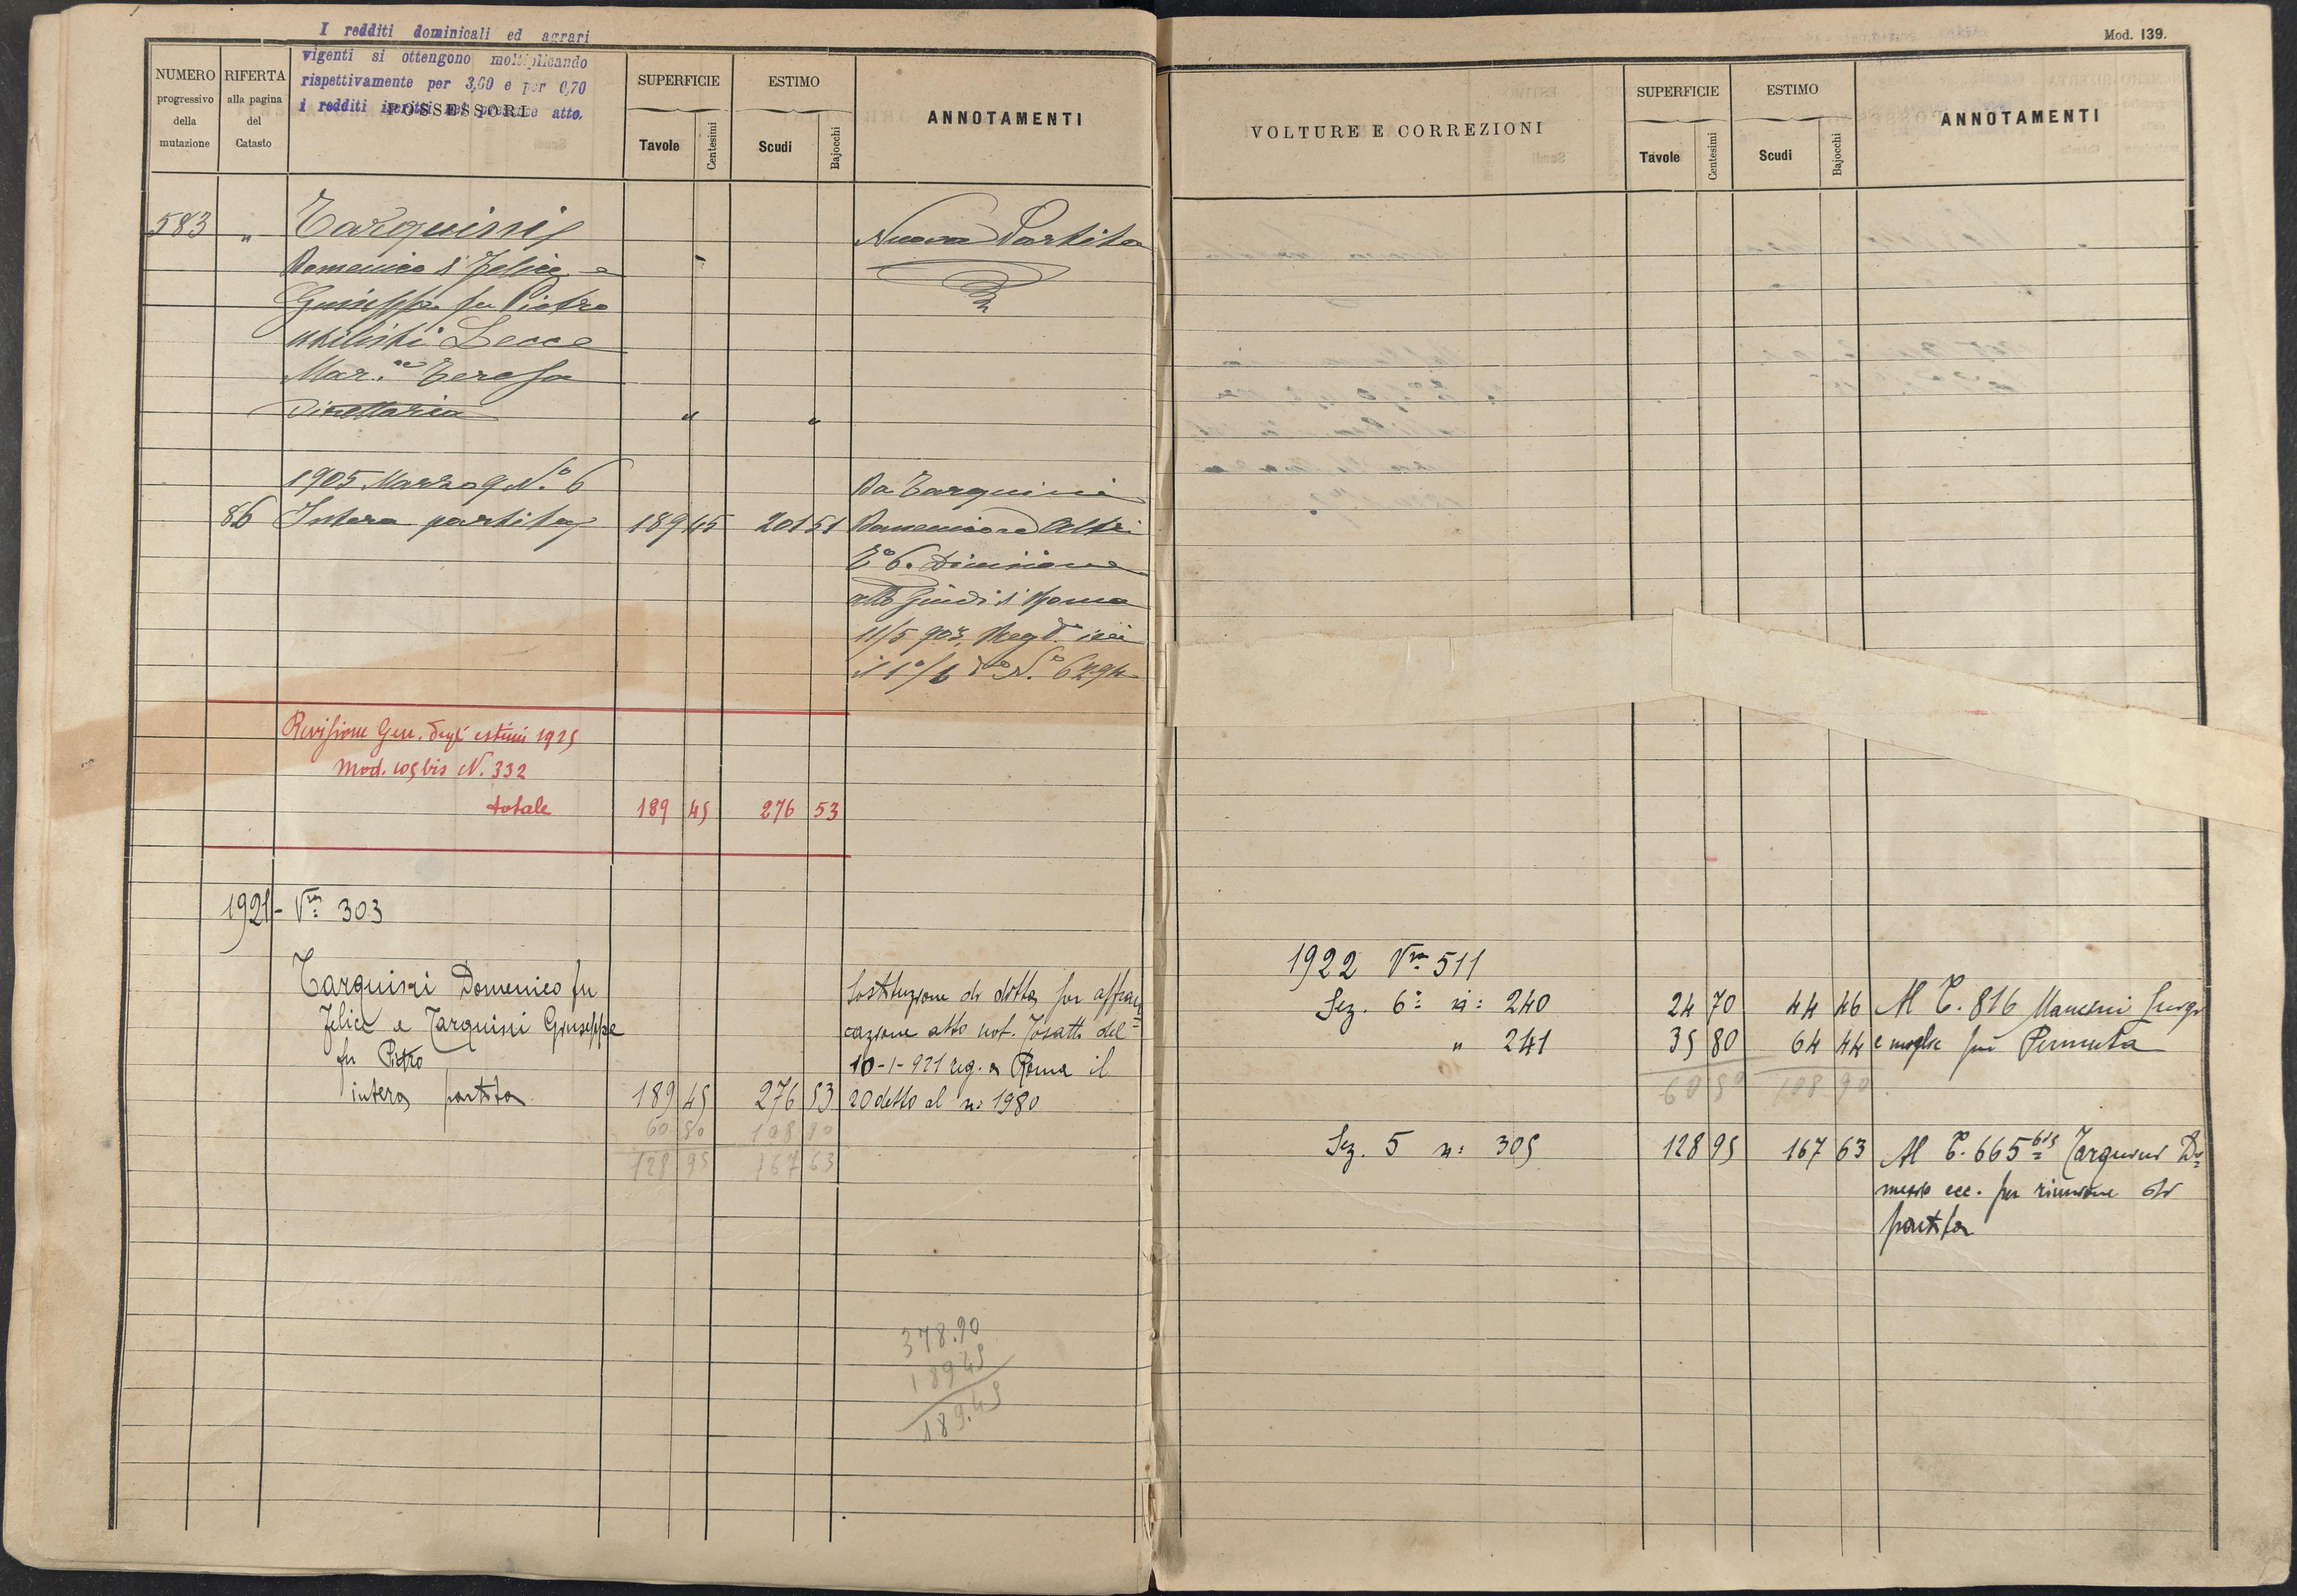 I redditi dominicali ed agrari
vigenti si ottengono moltiplicando
rispettivamente per 3,60 e per 0,70
i redditi iscritti nel presente atto.
NUMERO progressivo della mutazione
RIFERTA alla pagina del Catasto
POSSESSORI
SUPERFICIE
Tavole Centesimi
ESTIMO
Scudi Bajocchi
ANNOTAMENTI
583 " Tarquinij Nuova Partita
Domenico di Felice e
Giuseppe fu Pietro
utilisti Lecce
Mar.ª Teresa
Direttaria " "
1905 Marzo 9 N.º 6 Da Tarquini
86 Intera partita 189 45 201 51 Domenico ed Altri
Tº 6. Divisione
atto Giudi di Roma
11/5 903. Reg.
il 1º/6 dº N.º
Revisione Gen. degli estimi 1925
Mod. 109 bis N. 332
totale 189 45 276 53
1921 - Vra 303
Tarquini Domenico fu Sostituzione di ditta per affran
Felice e Tarquini Giuseppe cazione atto not. del
fu Pietro 10-1-921 reg. a Roma il
intera partita 189 45 276 53 20 detto al n: 1980
60 50 108 90
128 95 167 63
378.90
189 45
189.45
Mod. 139.
VOLTURE E CORREZIONI
SUPERFICIE
Tavole Centesimi
ESTIMO
Scudi Bajocchi
ANNOTAMENTI
1922 Vra 511
Sez. 6ª n: 240 24 70 44 46 Al T. 816 Mancini
" 241 35 80 64 44 e moglie per Permuta
60 50 108 90
Sez. 5 n: 305 128 95 167 63 Al T. 665 bis Tarquini Do=
menico ecc. per riunione di
partita